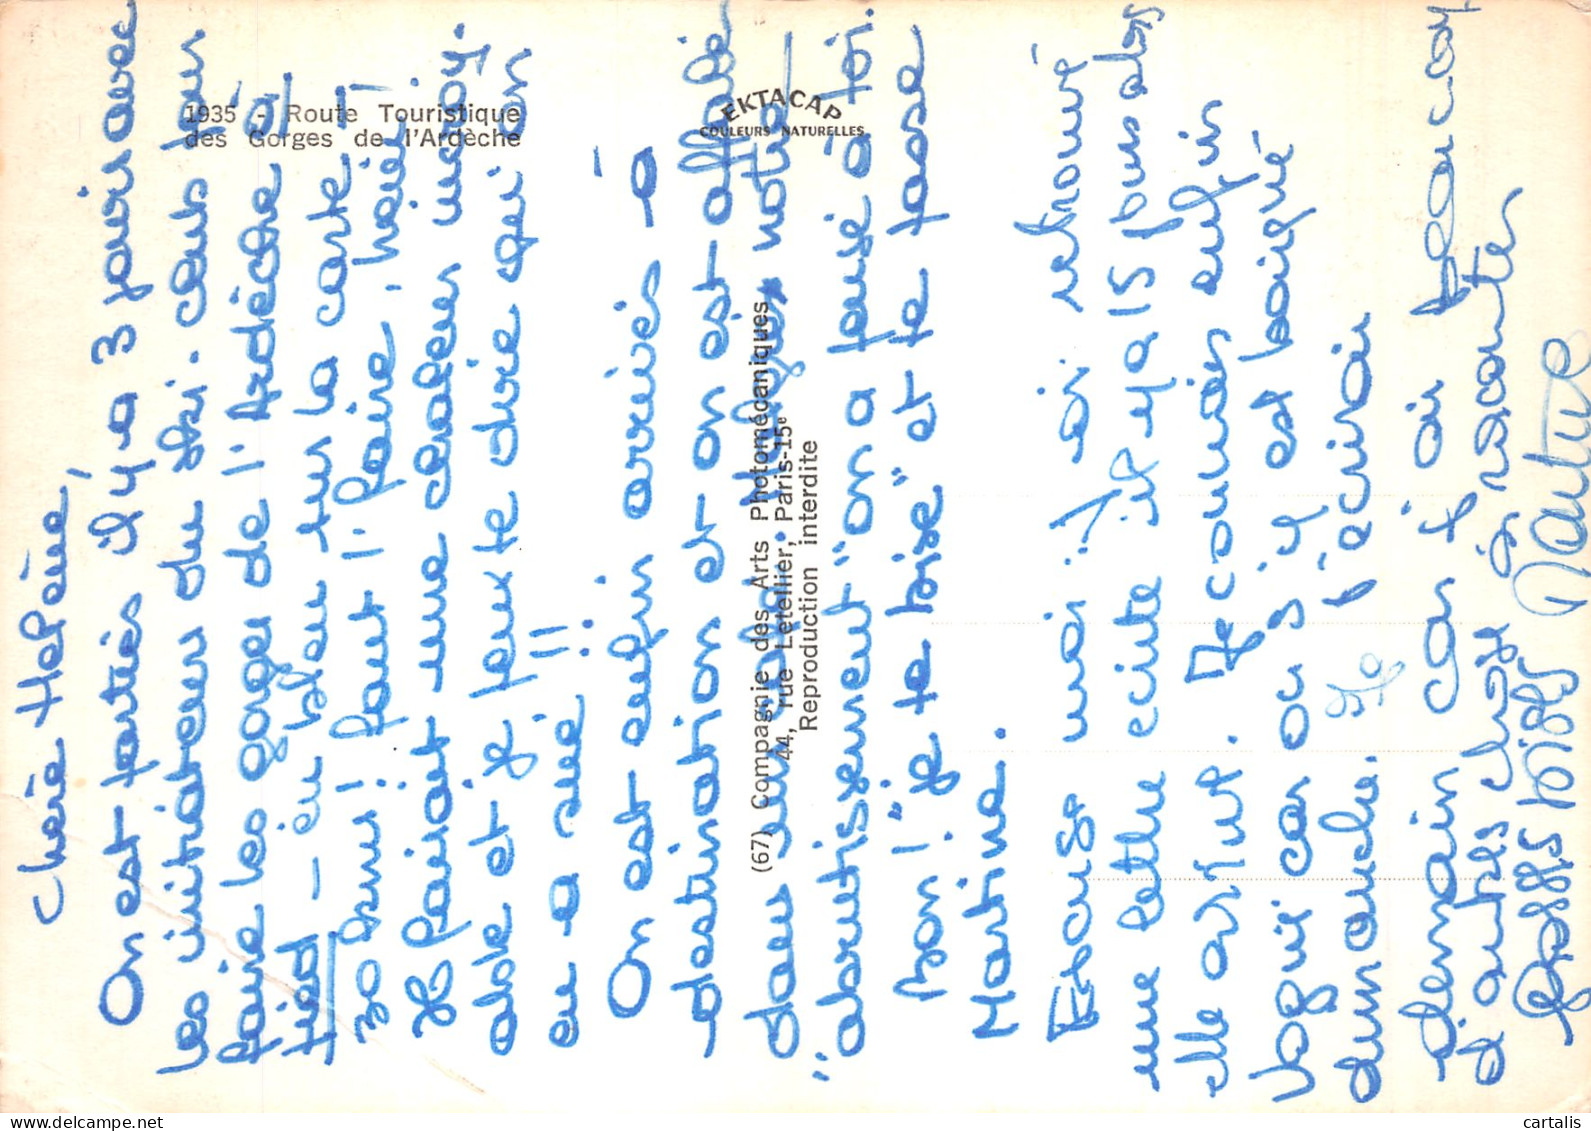 1935 - Route Touristique
des Gorges de l'Ardèche
EKTACAP
COULEURS NATURELLES
(67) Compagnie des Arts Photomécaniques
44, rue Letellier, Paris-15e
Reproduction interdite
Chère Hélène,
On est partis il y a 3 jours avec
les initiateurs du ski-club pour
faire les gorges de l'Ardèche à
pied - en bleu sur la carte -
30 kms! faut l'faire, hein!
Il faisait une chaleur incroy-
able et je peux te dire qu'on
en a sué!!
On est enfin arrivés à
destination et on est affalé
dans un café. Malgré notre
"abrutissement" on a pensé à toi.
Bon! "je te bise" et te tasse
Martine.
Excuse moi j'ai retrouvé
une lettre écrite il y a 15 jours alors
elle arrive. Je commençais enfin
dimanche. Je t'écrirai
demain car j'ai beaucoup
d'autres choses à raconter
Grosses bises Martine
cartalis